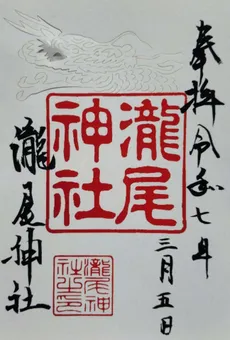 奉拝
令和七年
三月五日
瀧尾
神社
瀧尾神社
瀧尾神
社之印